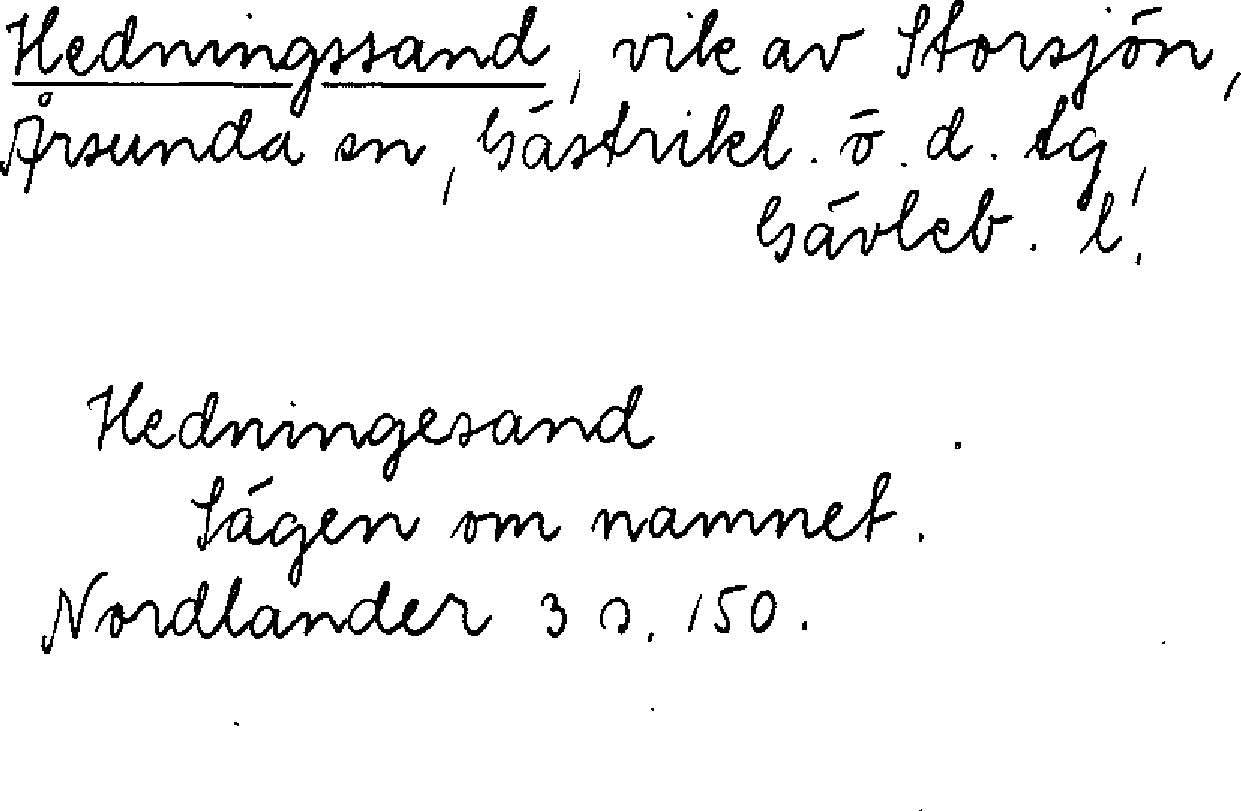 Hedningssand, vik av Storsjön,
Årsunda sn, Gästrikl. ö. d. tg,
Gävleb. l.
Hedningesand
Sägen om namnet.
Nordlander 3 s. 150.